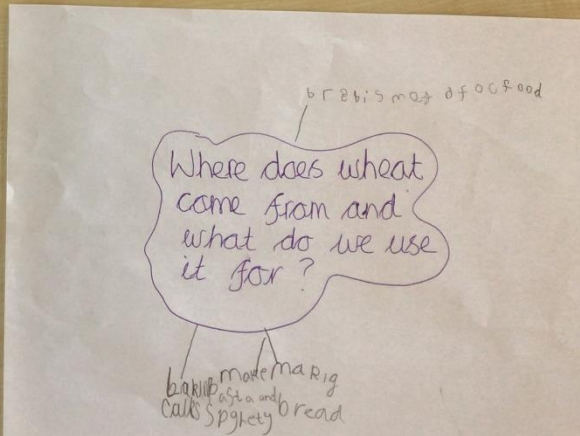 brebis mof of oc food
Where does wheat
come from and
what do we use
it for?
baking
caks
made
pasta and
Spghety
makig
bread